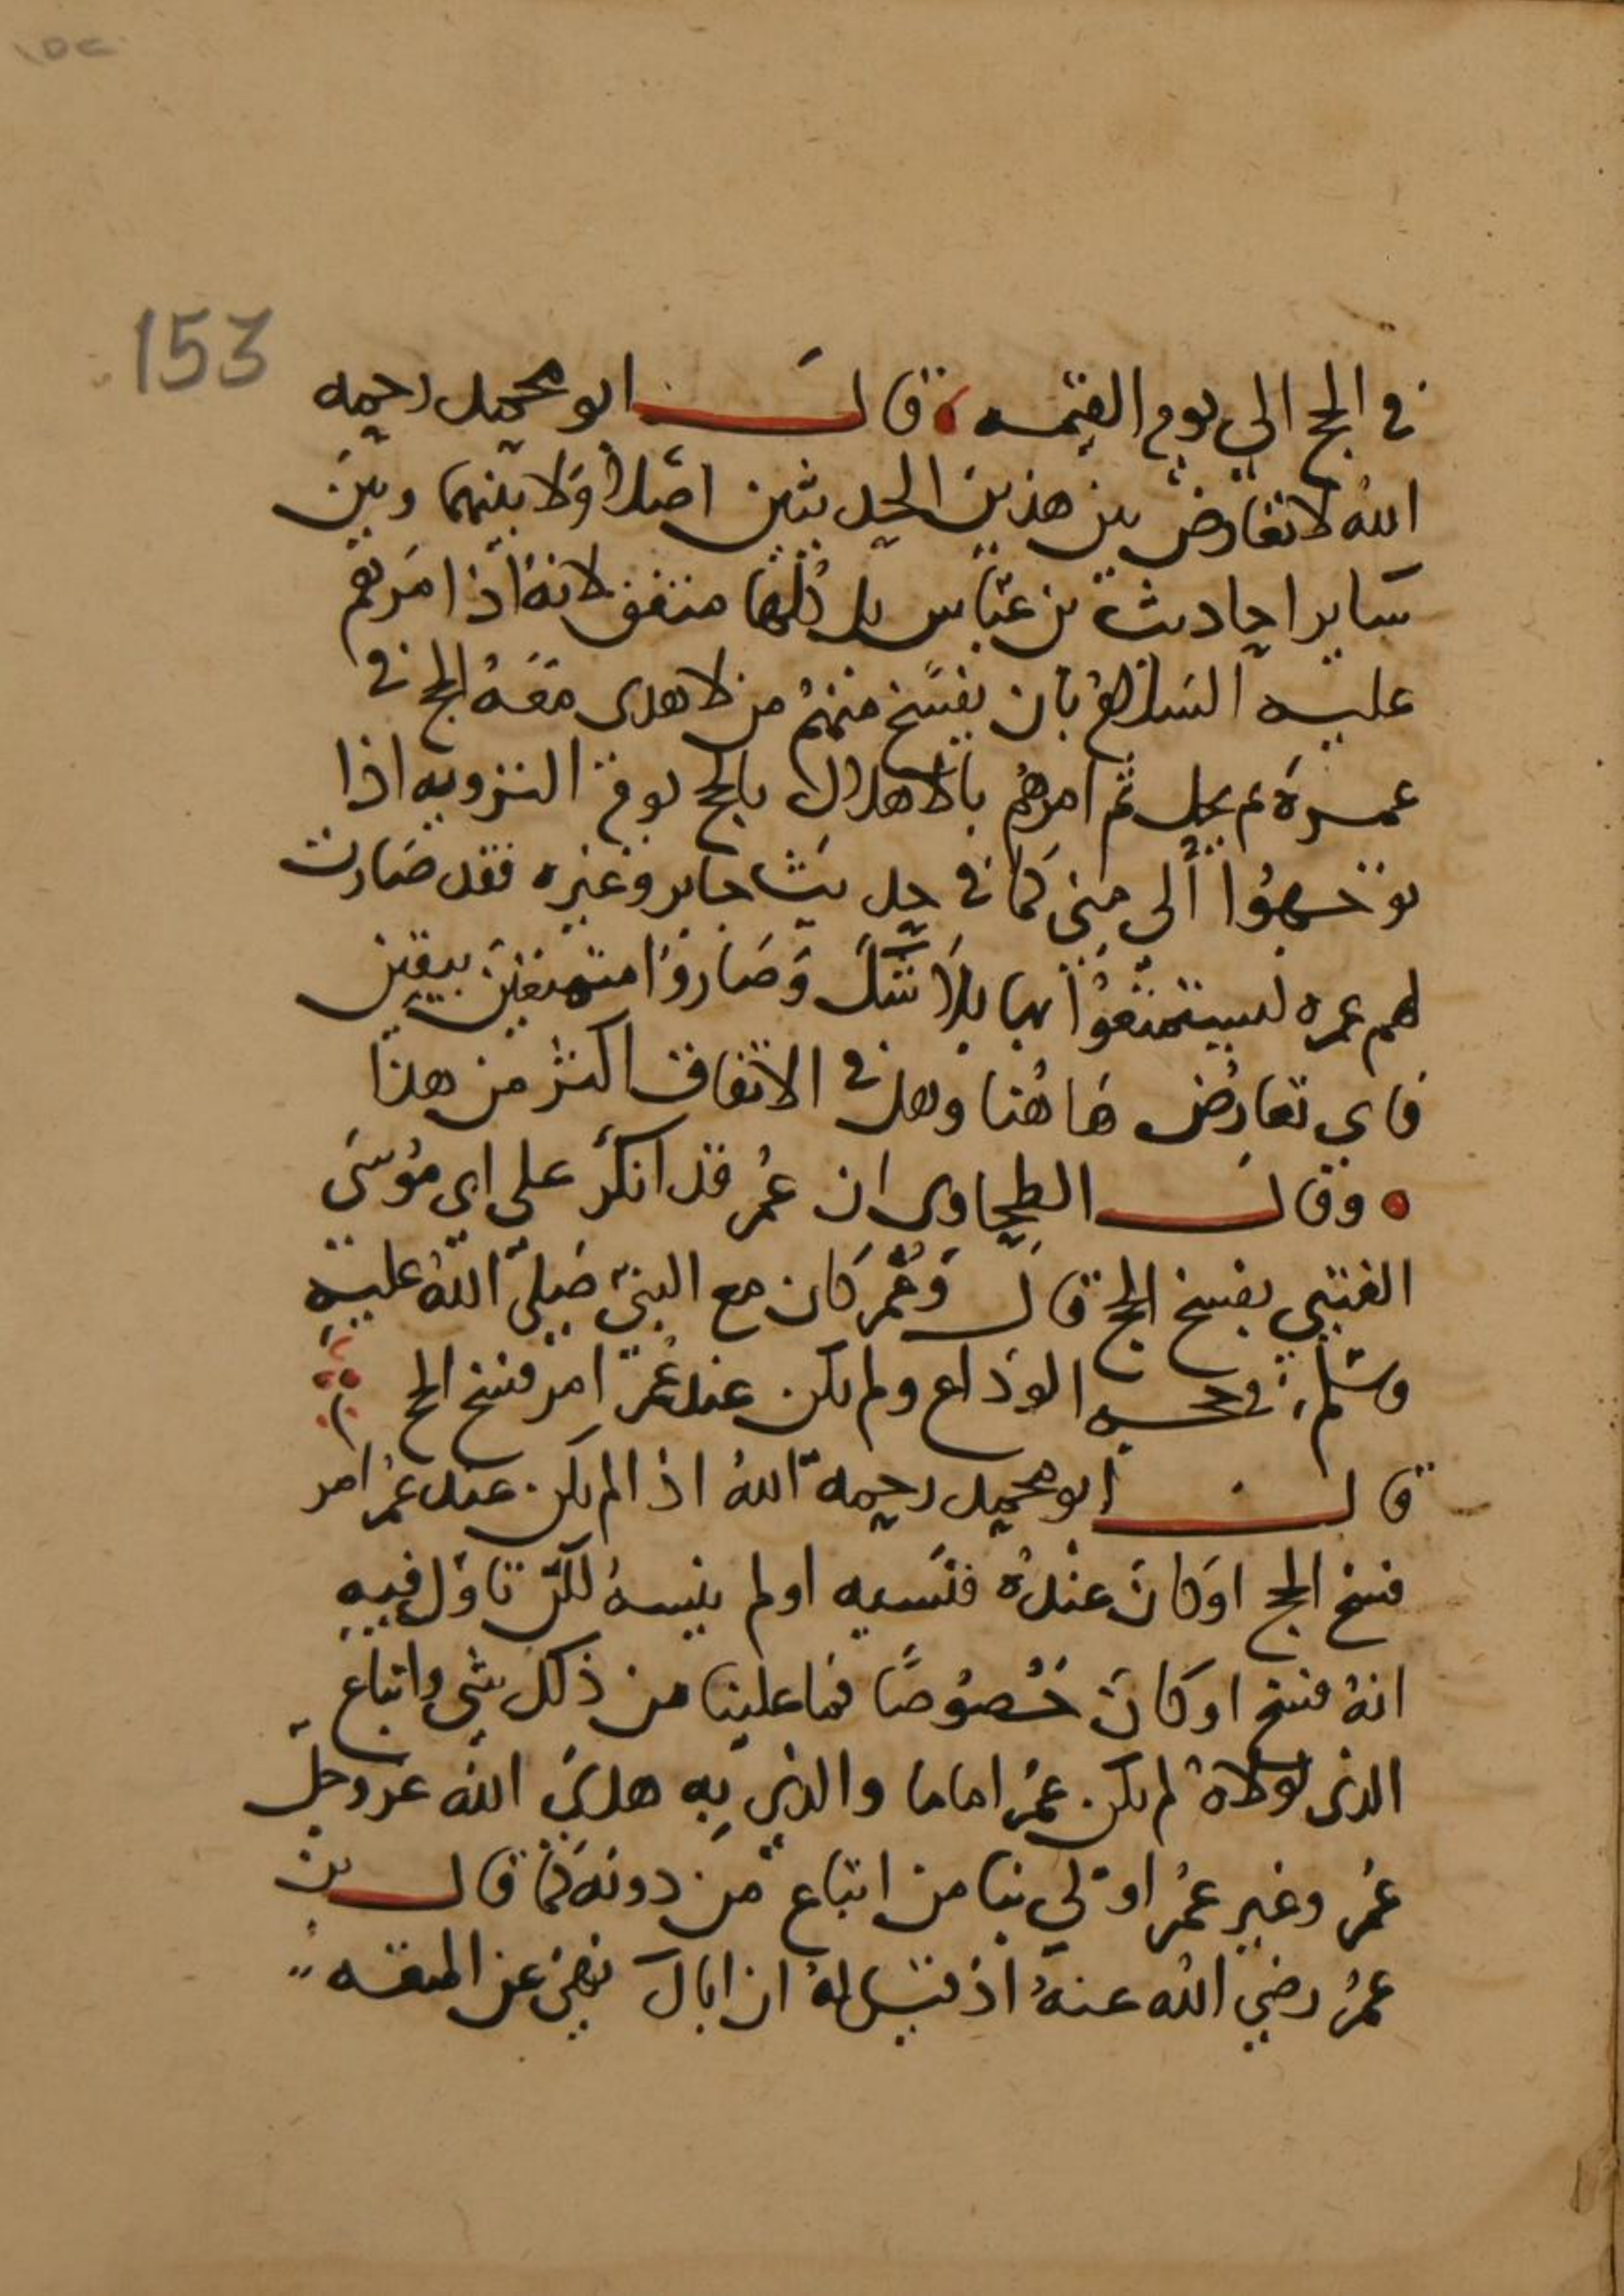 153
في الحج الي يوم القيمه قال ابو محمد رحمه
الله لا تعارض بين هذين الحديثين اصلا ولا بينهما وبين
ساير احاديث بن عباس بل كلها متفق لانه اذا امرهم
عليه السلام بان يفسخ منهم من لا هدى معه الحج في
عمرة ثم يحل ثم امرهم بالاهلال بالحج يوم التروية اذا
توجهوا الي منى كما في حديث جابر وغيره فقد صارت
لهم عمره ليستمتعوا بها بلا شك وصاروا متمتعين بيقين
فاي تعارض هاهنا وهل في الاتفاق اكثر من هذا
وقال الطحاوي ان عمر قد انكر على ابي موسى
الفتيى بفسخ الحج قال وعمر كان مع النبي صلى الله عليه
وسلم في حجه الوداع ولم يكن عند عمر امر فسخ الحج
قال ابو محمد رحمه الله اذا لم يكن عند عمر امر
فسخ الحج او كان عنده فنسيه او لم ينسه لكن تاول فيه
انه فسخ او كان خصوصا فما علينا من ذلك شي واتباع
الذى لولاه لم يكن عمر اماما والذي به هدى الله عز وجل
عمر وغير عمر اولي بنا من اتباع من دونه كما قال بن
عمر رضي الله عنه اذ قيل له ان اباك نهى عن المتعه